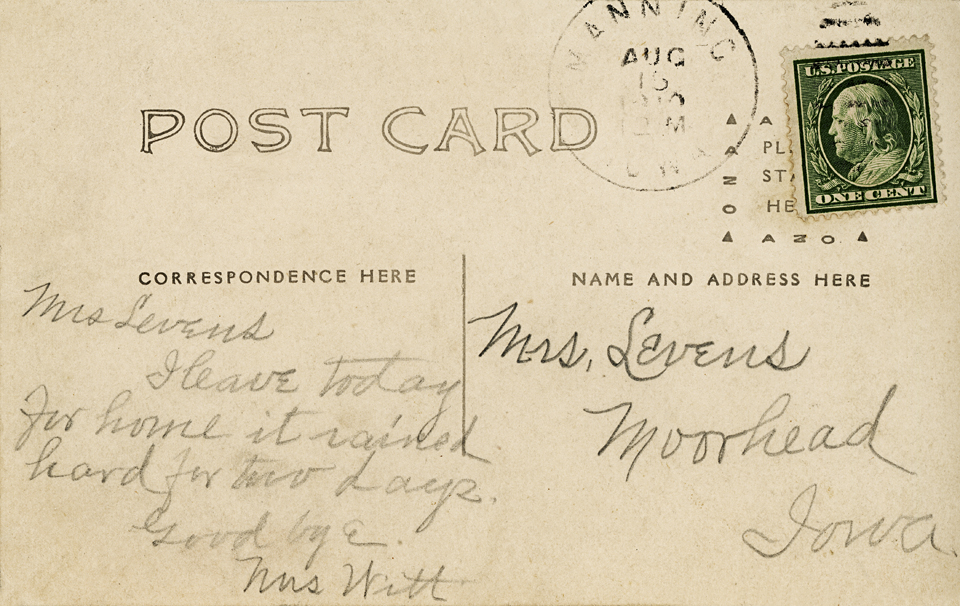 MANNING
AUG
1910
M
U.S. POSTAGE
ONE CENT
POST CARD
A
PL
ST
HE
AZO
AZO
CORRESPONDENCE HERE
NAME AND ADDRESS HERE
Mrs Levens
I leave today
for home it rained
hard for two days.
Good bye.
Mrs Witt
Mrs. Levens
Moorhead
Iowa.